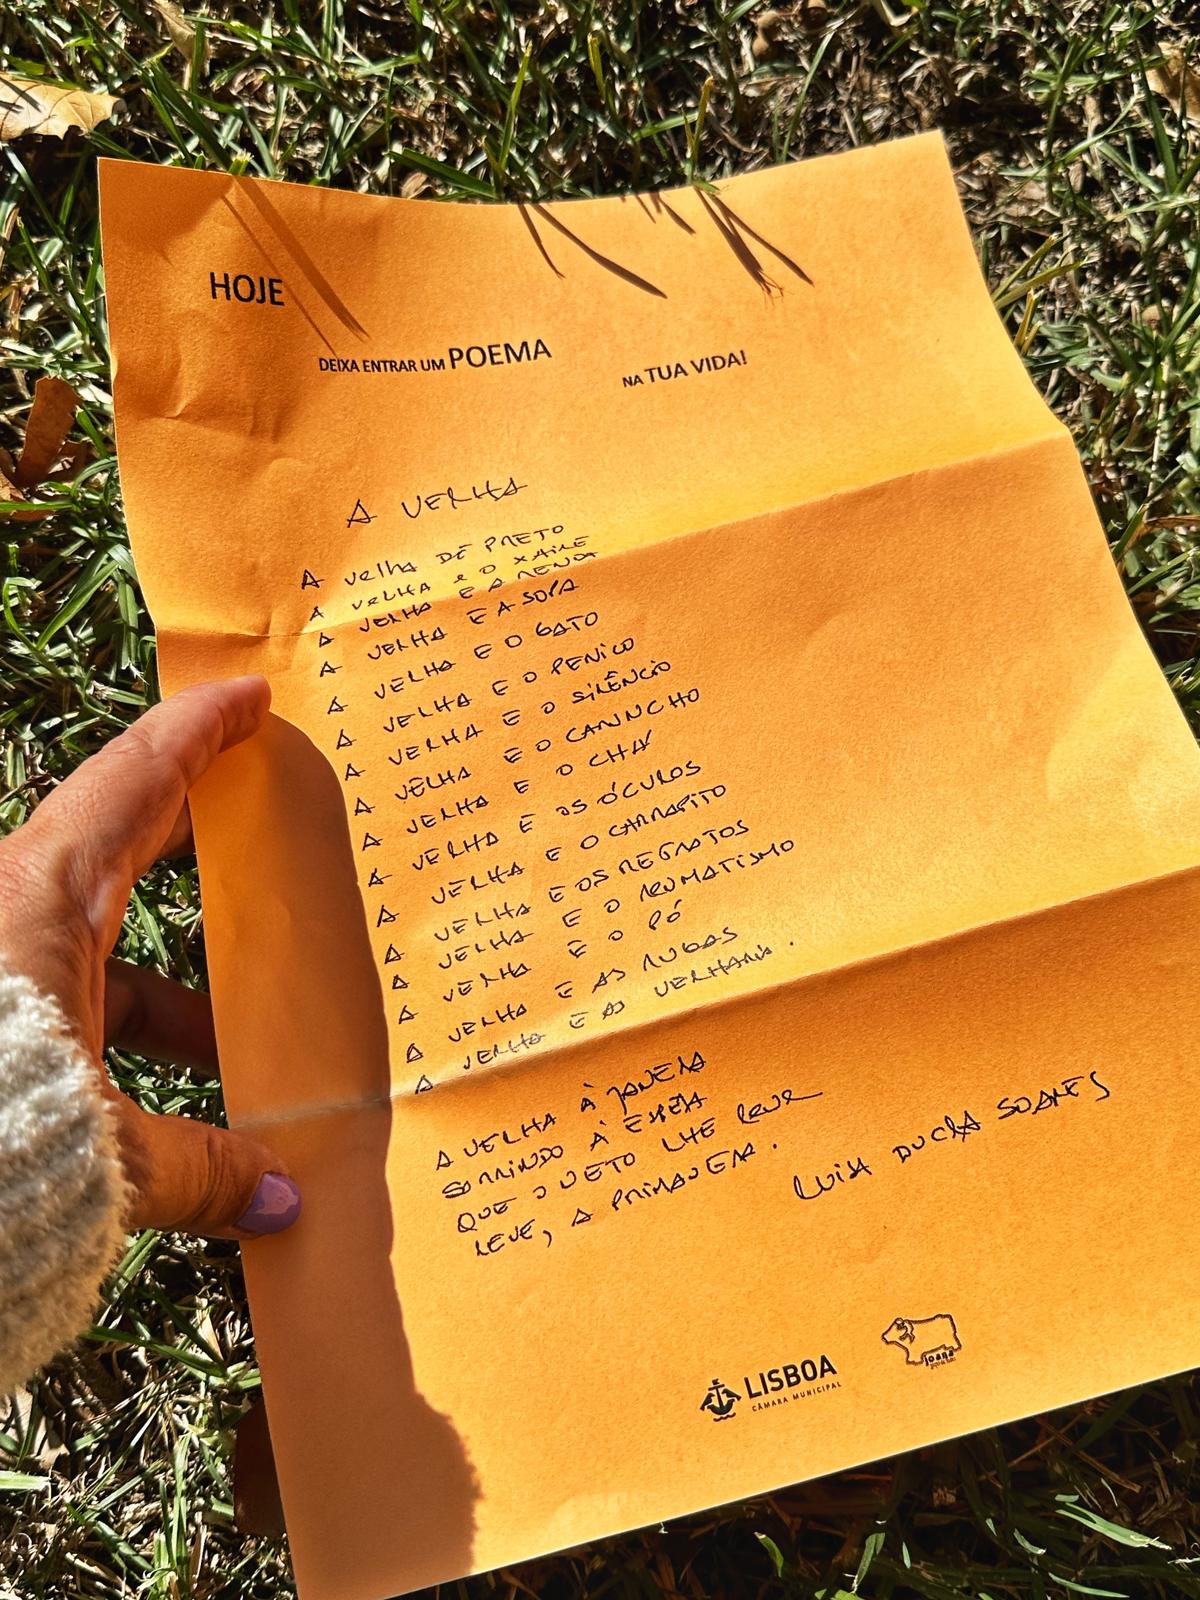 HOJE
DEIXA ENTRAR UM POEMA
NA TUA VIDA!
A VELHA
A velha DE PRETO
A VELHA e O XAILE
A VELHA E A RENDA
A VELHA E A SOPA
A VELHA E O GATO
A VELHA E O PENICO
A VELHA E O SILÊNCIO
A VELHA E O CARINCHO
A VELHA E O CHÁ
A VELHA E OS ÓCULOS
A VELHA E O CARRAPITO
A VELHA E OS REGATOS
A VELHA E O REUMATISMO
A VELHA E O PÓ
A VELHA E AS RUGAS
A VELHA E AS VELHARIAS.
A VELHA À JANELA
SORRINDO À ESPERA
QUE O NETO LHE LEVE
LEVE, A PRIMAVERA.
LUISA DUCLA SOARES
LISBOA
CÂMARA MUNICIPAL
joana